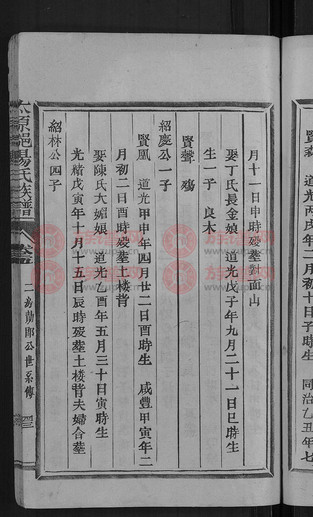 道光丙戌年二月初十日子時生
同治乙丑年七
月十一日申時歿塟對面山
娶丁氏長金娘 道光戊子年九月二十一日巳時生
生一子 良木
賢聲 殤
紹慶公一子
賢鳳 道光甲申年四月廿二日酉時生 咸豐甲寅年二
月初二日酉時歿塟土樓背
娶陳氏大媚娘 道光乙酉年五月三十日寅時生
光緒戊寅年十月十五日辰時歿塟土樓背夫婦合塟
紹林公四子
太原邑楊氏族譜 卷
二房蘭郎公世系傳